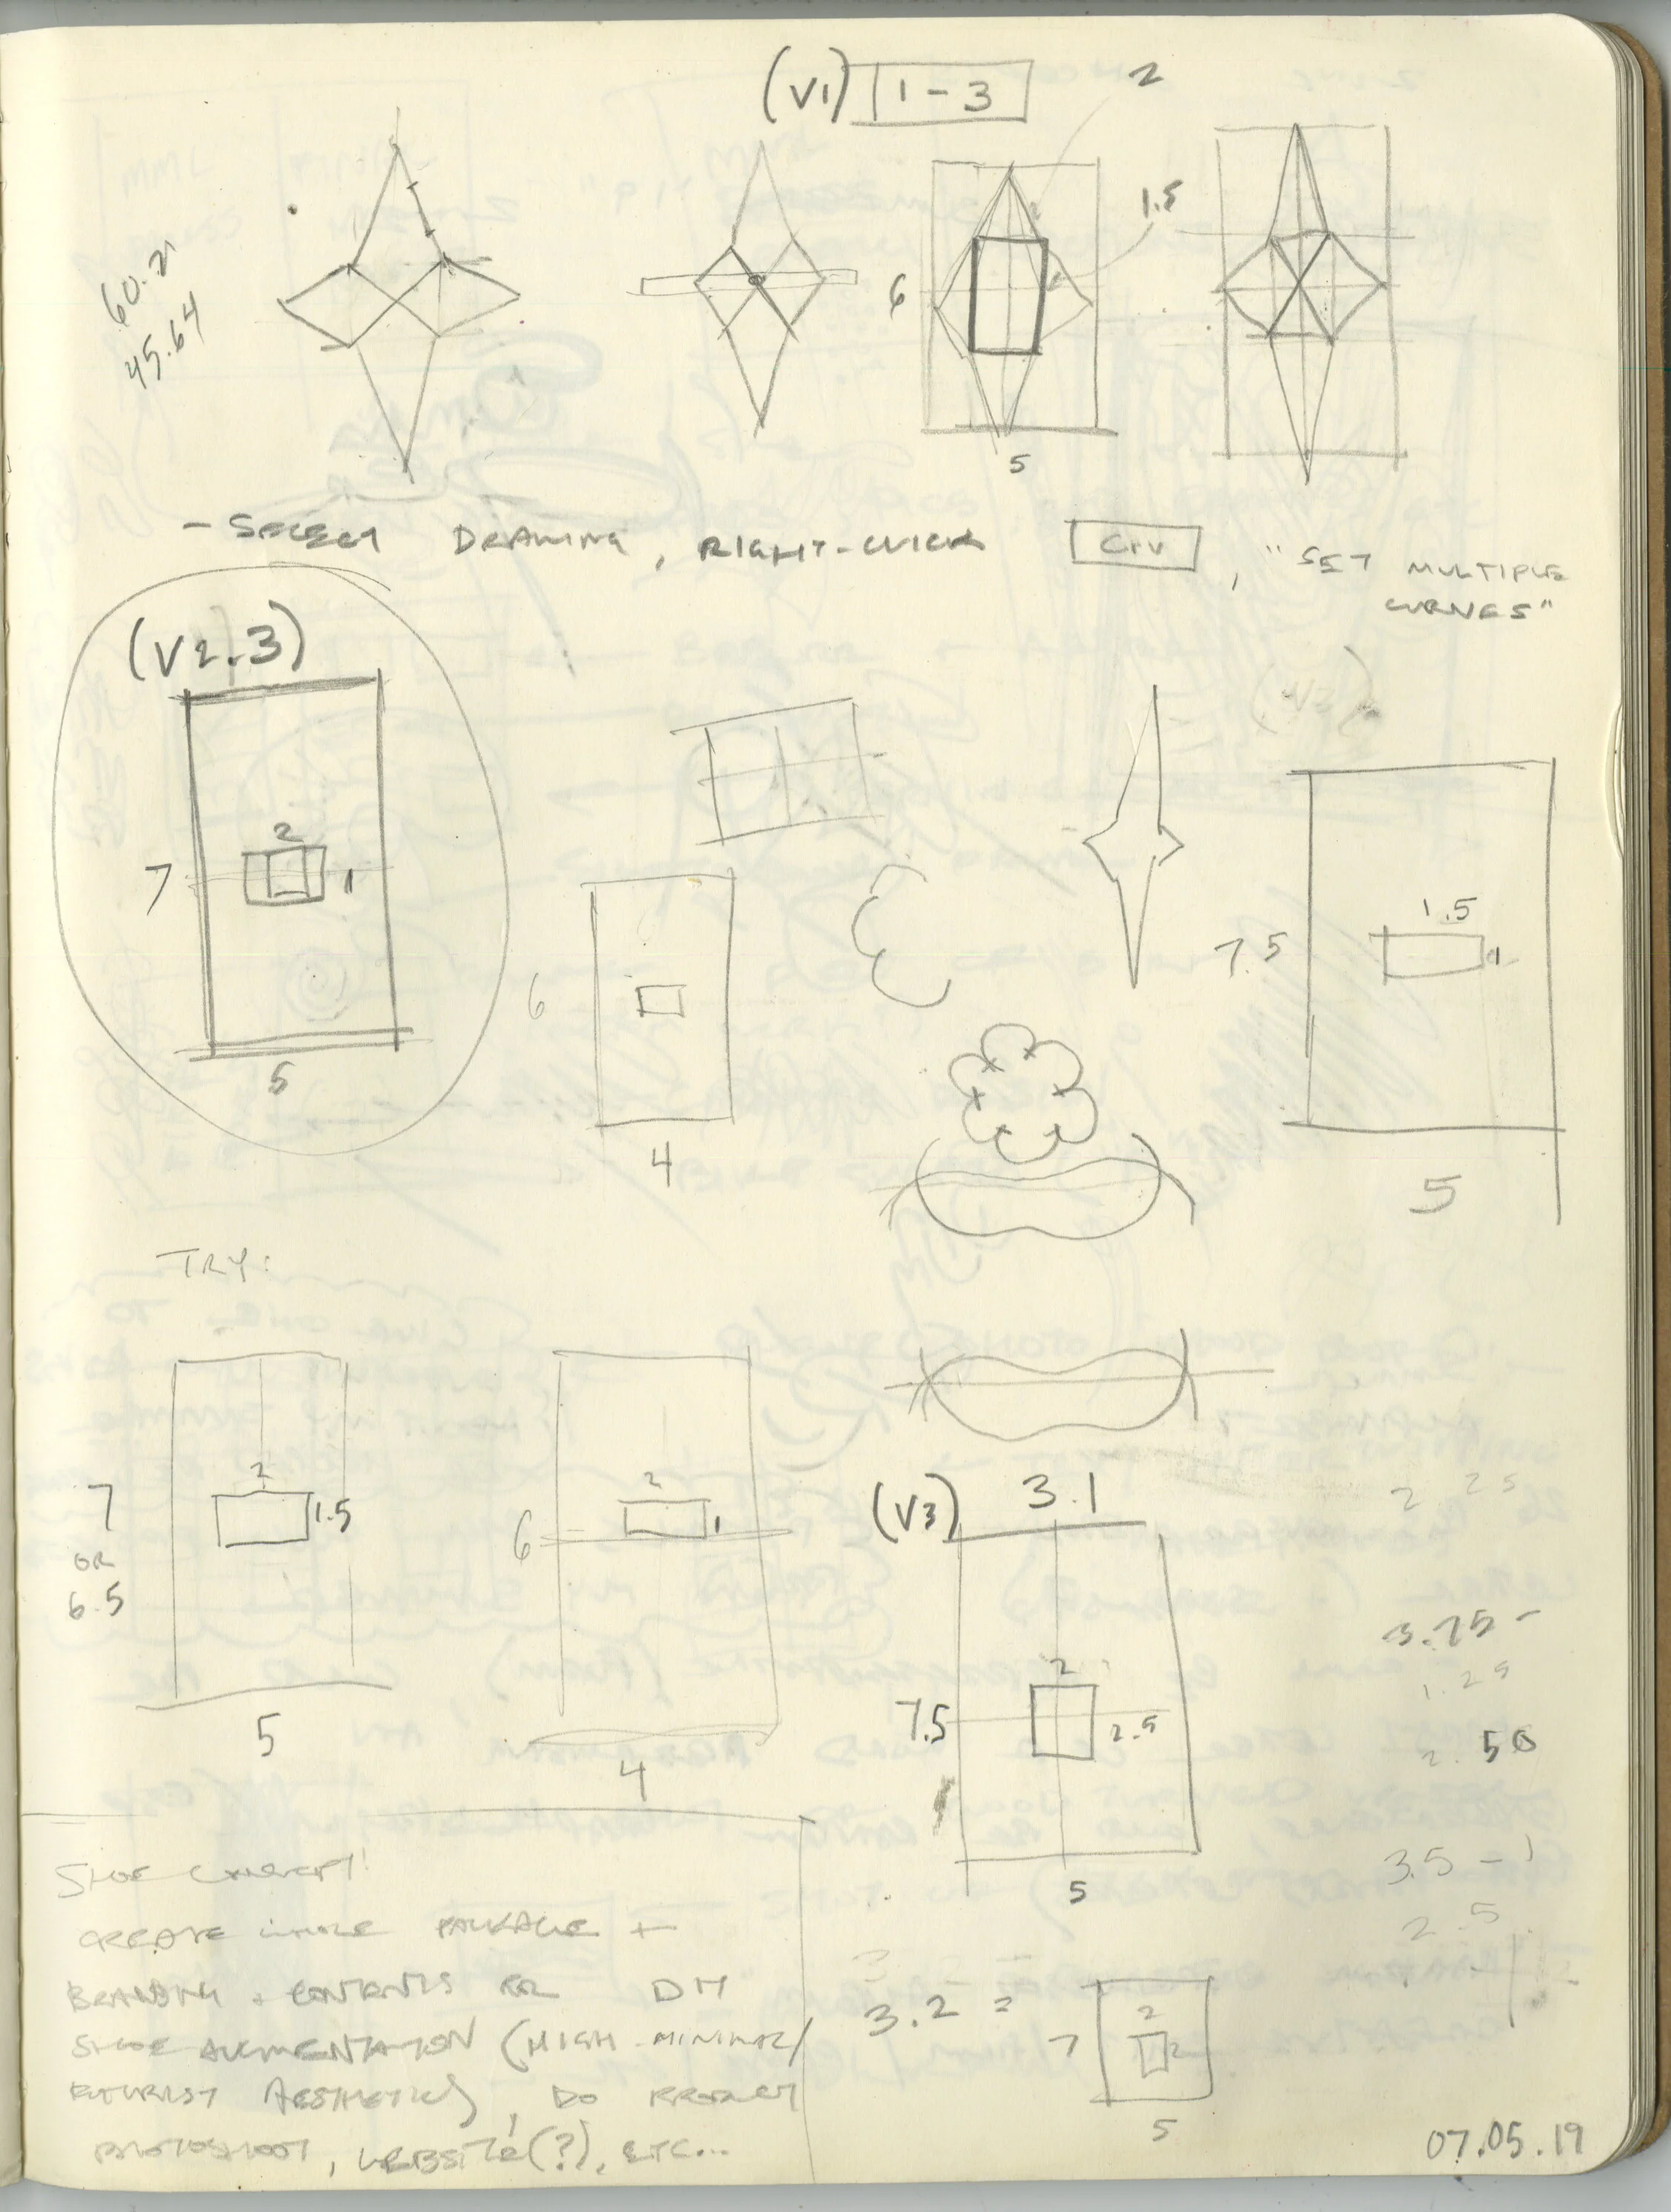 (V1) 1-3
2
1.5
6
5
60.21
45.64
- SELECT DRAWING, RIGHT-CLICK Crv, "SET MULTIPLE
CURVES"
(V2.3)
2
7
1
5
6
4
1.5
7.5
1
5
TRY:
2
7
OR
6.5
1.5
5
2
6
1
4
(V3) 3.1
2
7.5
2.5
5
2 25
3.75-
1.25
2.50
3.5-1
2.5
SHOE CONCEPT!
CREATE WHOLE PACKAGE +
BRANDING + CONTENTS FOR DM
SHOE AUGMENTATION (HIGH-MINIMAL/
FUTURIST AESTHETICS), DO PRODUCT
PHOTOSHOOT, WEBSITE(?), ETC...
3.2 =
2
7
2
5
07.05.19